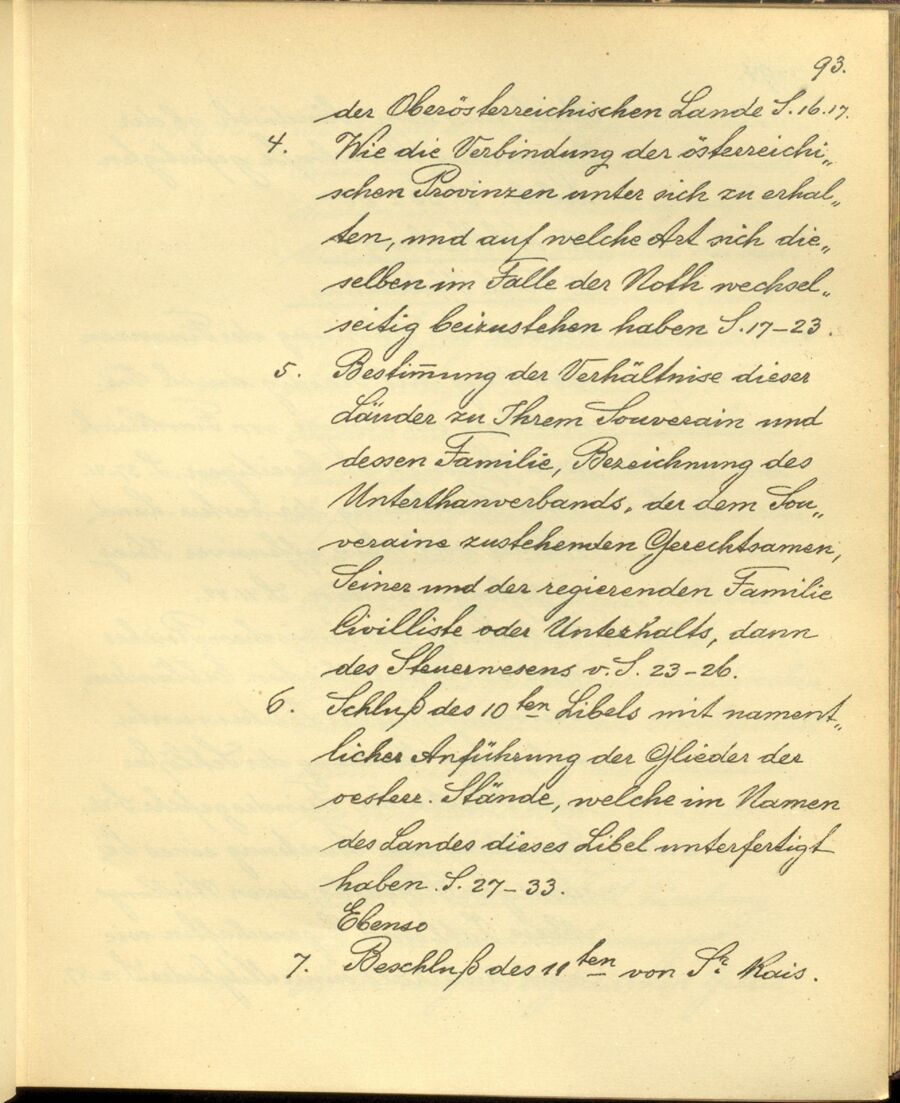 93.
der Oberösterreichischen Lande S. 16.17.
4. Wie die Verbindung der österreichi„
schen Provinzen unter sich zu erhal„
ten, und auf welche Art sich die„
selben im Falle der Noth wechsel„
seitig beizustehen haben S. 17–23.
5. Bestim̅ung der Verhältnise dieser
Länder zu Ihrem Souverain und
dessen Familie, Bezeichnung des
Unterthanverbands, der dem Sou„
veraine zustehenden Gerechtsamen,
Seiner und der regierenden Familie
Civilliste oder Unterhalts, dann
des Steuerwesens v. S. 23–26.
6. Schluß des 10ten Libels mit nament„
licher Anführung der Glieder der
oesterr. Stände, welche im Namen
des Landes dieses Libel unterfertigt
haben. S. 27–33.
Ebenso
7. Beschluß des 11ten von Sr. Kais.